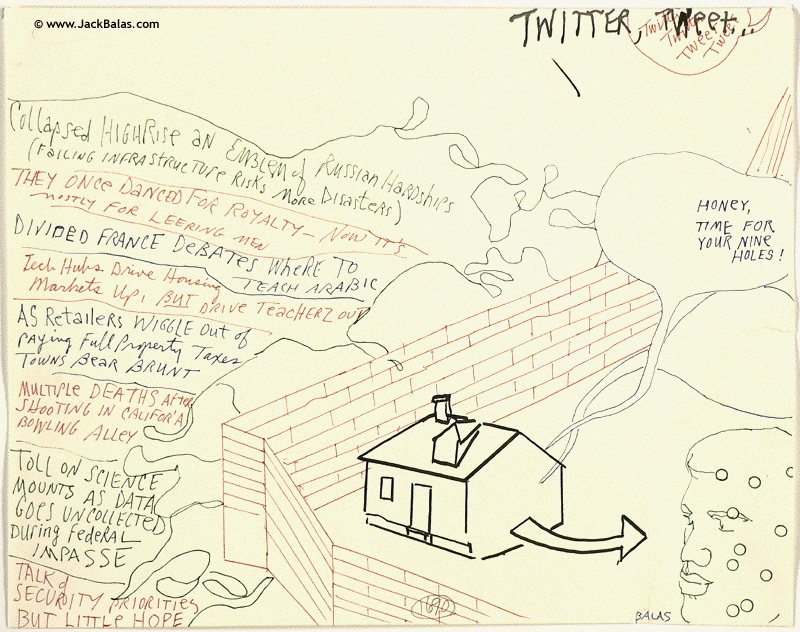 © www.JackBalas.com
TWITTER, TWeet..
Twitter
Twitter
TweeT
Tweet
Collapsed HIGHRise an Emblem of Russian Hardships
(FAILING INFRASTRUCTURE RISKS More Disasters)
THEY ONCE DANCED FOR ROYALTY — NOW IT'S
MOSTLY FOR LEERING MEN
DIVIDED FRANCE DeBATES WHERE TO
TEACH ARABIC
Tech Hubs Drive Housing
Markets Up, BUT DRIVE TEACHERZ OUT
AS Retailers WIGGLE Out of
paying Full Property Taxes
TOWNS BEAR BRUNT
MULTIPLE DEATHS AfteR
SHOOTING IN CALIFOR'A
BOWLING ALLEY
TOLL ON SCIENCE
MOUNTS AS DATA
GOES UNCOLLECTED
During Federal
IMPASSE
TALK of
SECURITY PRIORITIES
BUT LITTLE HOPE
HONEY,
TIME FOR
YOUR NINE
HOLES!
BALAS